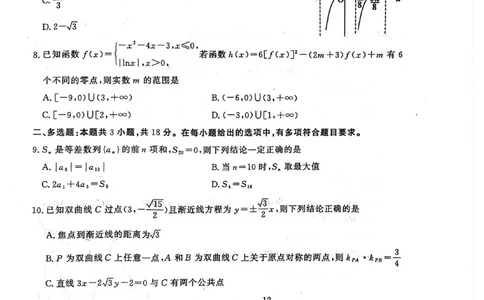 C. √3/3
D. 2-√3
8. 已知函数 f(x)={-x²-4x-3,x≤0, |lnx|,x>0, 若函数 h(x)=6[f(x)]²-(2m+3)f(x)+m 有 6
个不同的零点,则实数 m 的范围是
A. [-9,0)∪(3,+∞) B. (-6,0)∪(3,+∞)
C. [-9,0)∪[2,+∞) D. (-3,0)∪[1,+∞)
二、多选题:本题共 3 小题,共 18 分。在每小题给出的选项中,有多项符合题目要求。
9. Sₙ 是等差数列{aₙ}的前 n 项和,S₂₀=0,则下列结论一定正确的是
A. |a₉|=|a₁₂| B. 当 n=10 时,Sₙ 取最大值
C. 2a₁+4a₃=S₆ D. S₄=S₁₆
10. 已知双曲线 C 过点(3,-√15/2)且渐近线方程为 y=±√3/2x,则下列结论正确的是
A. 焦点到渐近线的距离为√3
B. P 为双曲线 C 上任意一点,A 和 B 为双曲线 C 上关于原点对称的两点,则 k_PA·k_PB=3/4
C. 直线 3x-2√3y-2=0 与 C 有两个公共点